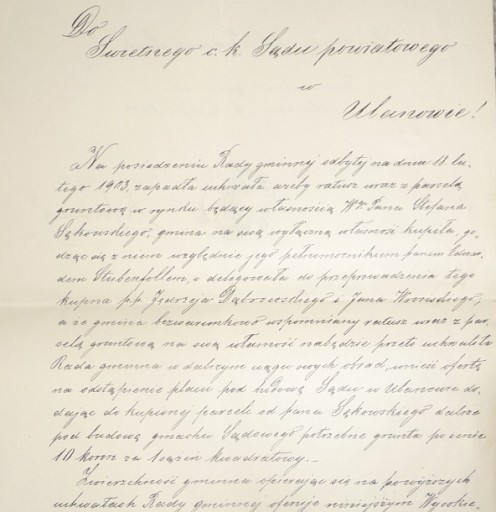 Do
Swietnego c. k. Sądu powiatowego
w
Ulanowie!
Na posiedzeniu Rady gminnej odbytej na dniu 11 lu-
tego 1903, zapadła uchwała ażeby ratusz wraz z parcelą
gruntową w rynku będący własnością Wgo Pana Stefana
Sękowskiego, gmina na swą wyłączną własność kupiła, go-
dząc się z nim względnie jego pełnomocnikiem panem Edwar-
dem Stubenfollem, i delegowała do przeprowadzenia tego
kupna p.p. Jędrzeja Dąbrowskiego i Jana
a że gmina bezwarunkowo wspomniany ratusz wraz z par-
celą gruntową na swą własność nabędzie przeto uchwaliła
Rada gminna w dalszym ciągu swych obrad, wnieść ofertę
na odstąpienie placu pod budowę Sądu w Ulanowie do-
dając do kupionej parceli od pana Sękowskiego dalsze
pod budowę gmachu Sądowego potrzebne grunta po cenie
10 koron za 1 sążeń kwadratowy.—
Zwierzchność gminna opierając się na powyższych
uchwałach Rady gminnej oferuje niniejszym Wysokie-